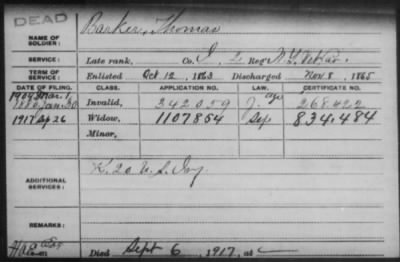 DEAD
NAME OF SOLDIER: Barker, Thomas
SERVICE: Late rank, Co. I, 2 Reg't N.Y. Vet Cav.
TERM OF SERVICE: Enlisted Oct 12, 1863 Discharged Nov. 8, 1865
DATE OF FILING. CLASS. APPLICATION NO. LAW. CERTIFICATE NO.
1904 Mar. 1
1880 Jan. 30 Invalid, 342059 J. age 268422
1917 Sep 26 Widow, 1107854 Sep 834484
Minor,
ADDITIONAL SERVICES: K. 20 U.S. Inf
REMARKS:
Died Sept 6, 1917, at